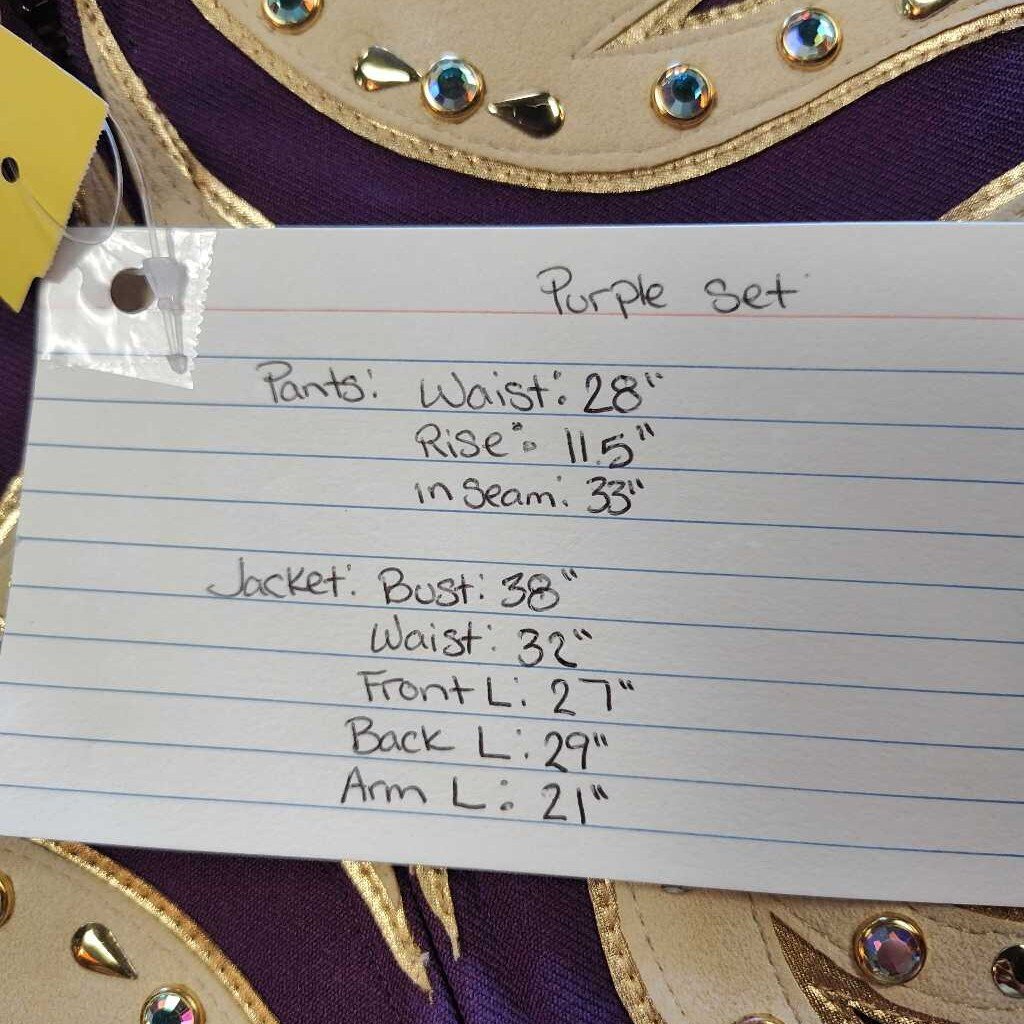 Purple Set
Pants: Waist: 28"
Rise: 11.5"
in Seam: 33"
Jacket: Bust: 38"
Waist: 32"
Front L: 27"
Back L: 29"
Arm L: 21"